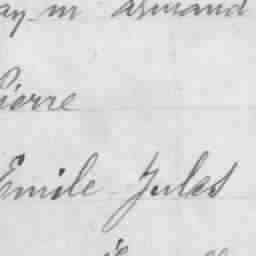 armand
Pierre
Emile Jules